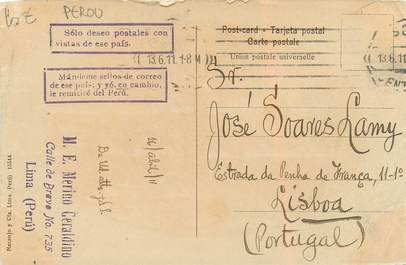 PEROU
Sólo deseo postales con
vistas de ese país.
Mándeme sellos de correo
de ese país; y yó, en cambio,
le remitiré del Perú.
Post-card - Tarjeta postal
Carte postale
Union postale universelle
13.6.11. 1-8 M
13.6.11
Sr.
José Soares Lamy
Estrada da Penha de França, 11-1º
Lisboa
(Portugal)
16/abril/11
M. E. Merino Geraldino
Calle de Bravo No. 735
Lima (Perú)
Naranjo y Cia. Lima Perú